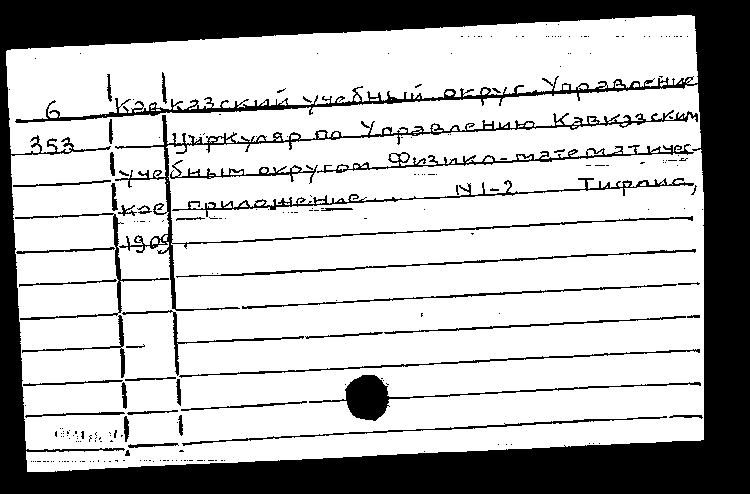 6 Кавказский учебный округ. Управление
353 Циркуляр по Управлению Кавказским
учебным округом Физико-математичес-
кое приложение... N 1-2 Тифлис,
1909.